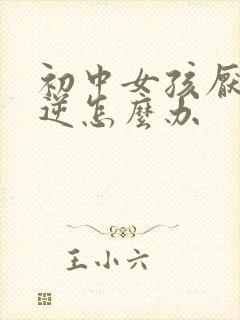 初中女孩厌
逆怎麼办
王小六